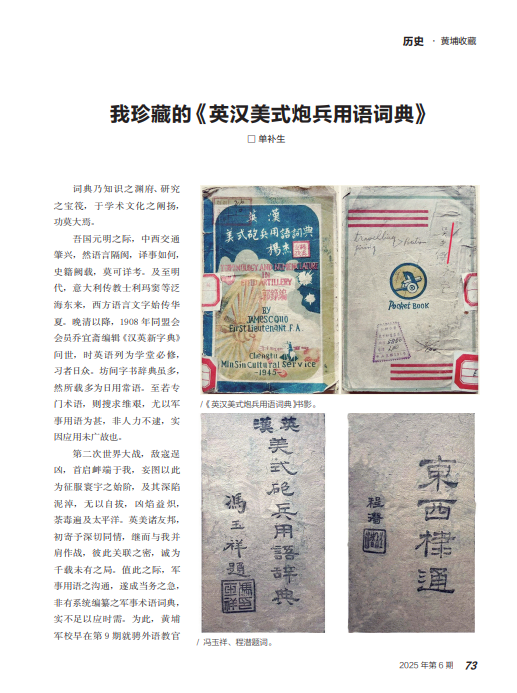 历史 · 黄埔收藏
我珍藏的《英汉美式炮兵用语词典》
□ 单补生
词典乃知识之渊府、研究
之宝筏，于学术文化之阐扬，
功莫大焉。
吾国元明之际，中西交通
肇兴，然语言隔阂，译事如何，
史籍阙载，莫可详考。及至明
代，意大利传教士利玛窦等泛
海东来，西方语言文字始传华
夏。晚清以降，1908 年同盟会
会员乔宜斋编辑《汉英新字典》
问世，时英语列为学堂必修，
习者日众。坊间字书辞典虽多，
然所载多为日用常语。至若专
门术语，则搜求维艰，尤以军
事用语为甚，非人力不逮，实
因应用未广故也。
第二次世界大战，敌寇逞
凶，首启衅端于我，妄图以此
为征服寰宇之始阶，及其深陷
泥淖，无以自拔，凶焰益炽，
荼毒遍及太平洋。英美诸友邦，
初寄予深切同情，继而与我并
肩作战，彼此关联之密，诚为
千载未有之局。值此之际，军
事用语之沟通，遂成当务之急，
非有系统编纂之军事术语词典，
实不足以应时需。为此，黄埔
军校早在第 9 期就聘外语教官
英漢
美式砲兵用語詞典
楊杰
BY
JAMES CQUO
First Lieutenant F.A.
Chengtu
Min Sin Cultural Service
-1945-
Travelling
Pocket BOOK
/《英汉美式炮兵用语词典》书影。
英漢
美式砲兵用語辞典
馮玉祥題
東西棣通
程潛
/ 冯玉祥、程潜题词。
2025 年第 6 期 73